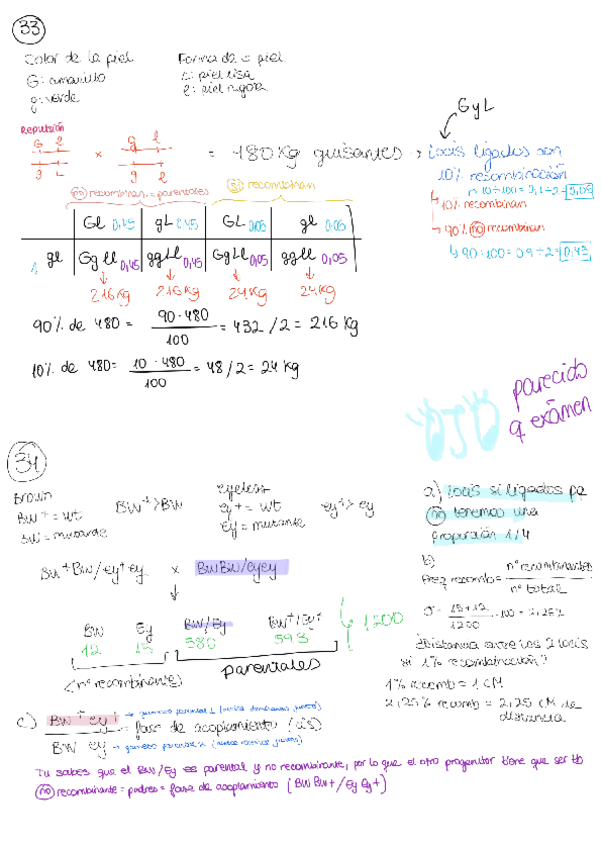 33
Color de la piel
G: amarillo
g: verde
Forma de piel
L: piel lisa
l: piel rugosa
GyL
Repulsión
G l
g L
×
g l
g l
= 480 Kg guisantes → Locis ligados con
10% recombinación
10÷100 = 0,1÷2 = 0,05
↳ 10% recombinan
→ 90% no recombinan
↳ 90÷100 = 0.9÷2 = 0,45
no recombinan = parentales
sí recombinan
Gl 0,45 gL 0,45 GL 0,05 gl 0,05
gl Ggll 0,45 ggLl 0,45 GgLl 0,05 ggll 0,05
216 Kg 216 Kg 24 Kg 24 Kg
90% de 480 = 90·480 / 100 = 432 /2 = 216 Kg
10% de 480 = 10·480 / 100 = 48/2 = 24 Kg
OJO
parecido
a exámen
34
Brown
BW+ = wt
BW = mutante
BW+ > BW
eyeless
ey+ = wt
ey = mutante
ey+ > ey
BW+BW/ey+ey × BWBW/eyey
BW Ey BW/Ey BW+/Ey+
12 15 580 593
1200
(nº recombinante)
parentales
a) Locis si ligados pq
no tenemos una
proporción 1/4
b)
Freq recomb = nº recombinantes / nº total
15+12 / 1200 · 100 = 2,25%
¿Distancia entre los 2 locis
si 1% recombinación?
1% recomb = 1 CM
2,25% recomb = 2,25 CM de
distancia
c) BW+ ey+ → gameto parental 1
BW ey → gameto parental 2
fase de acoplamiento (cis)
Tu sabes que el BW/Ey es parental y no recombinante, por lo que el otro progenitor tiene que ser tb
no recombinante = padres = fase de acoplamiento (BWBW+/EyEy+)